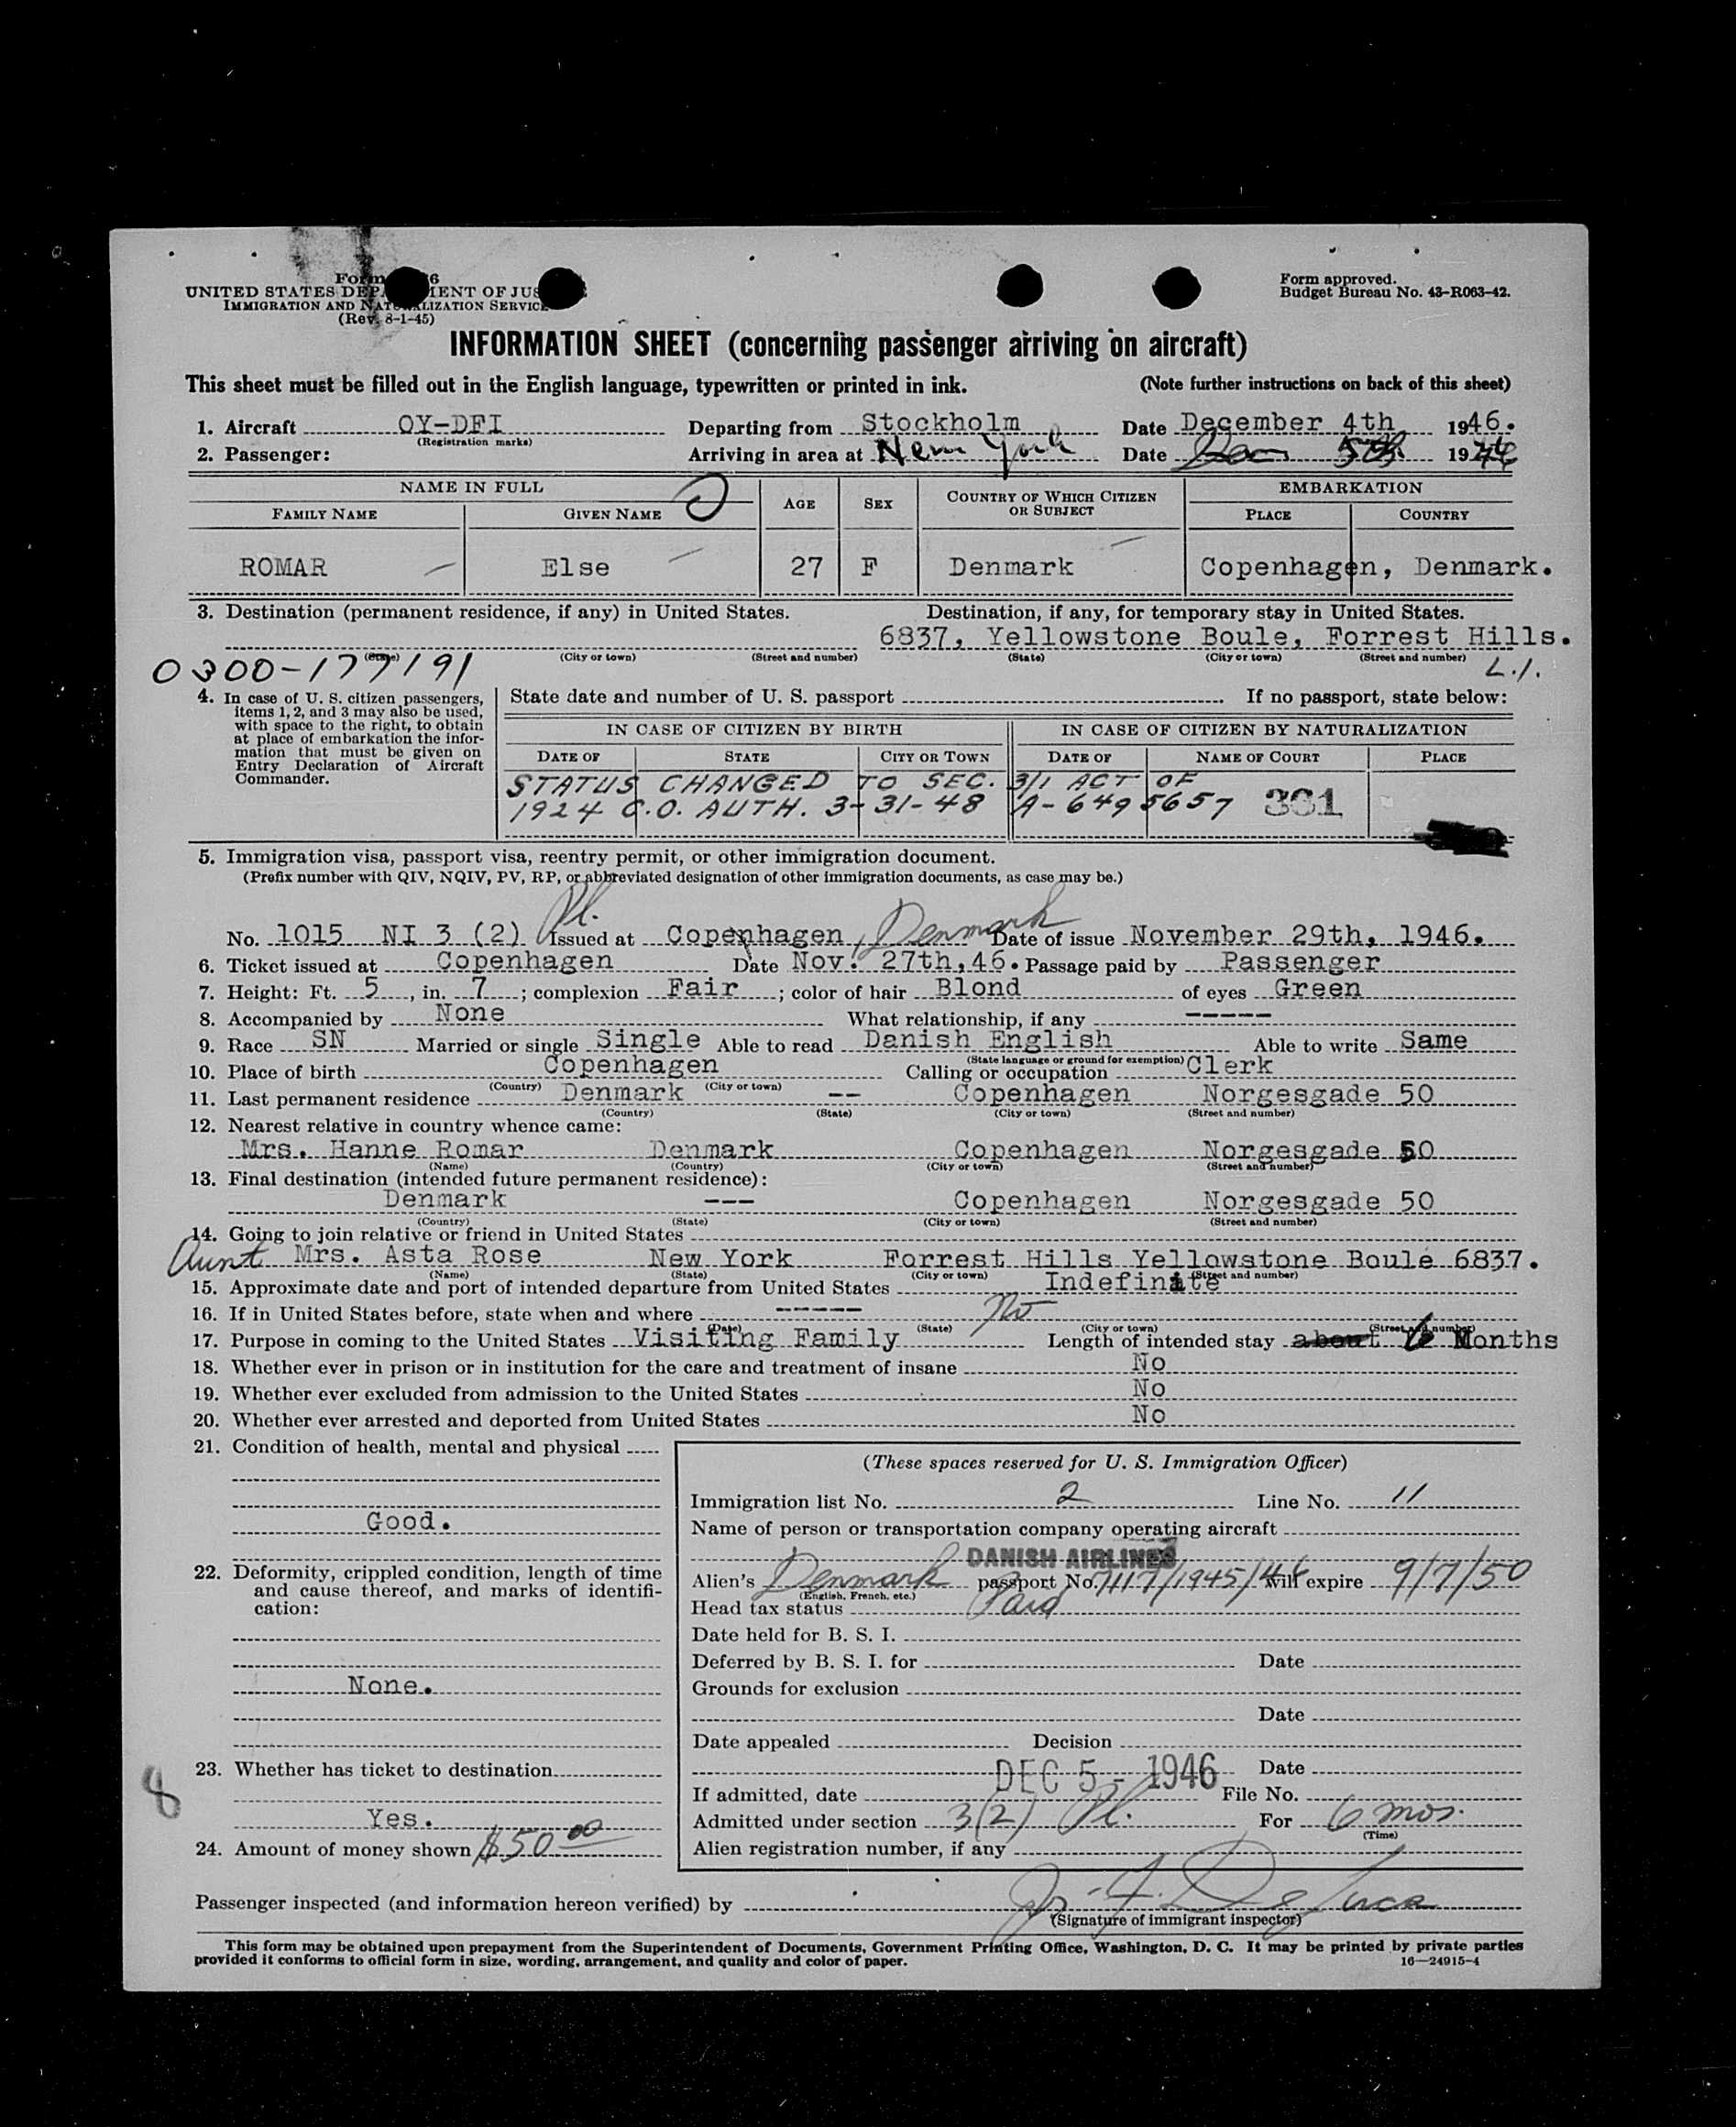 Form 6 Form approved.
UNITED STATES DEPA MENT OF JUS Budget Bureau No. 43-R063-42.
IMMIGRATION AND NATURALIZATION SERVICE
(Rev. 8-1-45)
INFORMATION SHEET (concerning passenger arriving on aircraft)
This sheet must be filled out in the English language, typewritten or printed in ink. (Note further instructions on back of this sheet)
1. Aircraft OY-DFI Departing from Stockholm Date December 4th 1946.
(Registration marks)
2. Passenger: Arriving in area at New York Date 5th 19
NAME IN FULL AGE SEX COUNTRY OF WHICH CITIZEN OR SUBJECT EMBARKATION
FAMILY NAME GIVEN NAME PLACE COUNTRY
ROMAR Else 27 F Denmark Copenhagen, Denmark.
3. Destination (permanent residence, if any) in United States. Destination, if any, for temporary stay in United States.
6837, Yellowstone Boule, Forrest Hills.
(State) (City or town) (Street and number) (State) (City or town) (Street and number)
0300-177191 L.I.
4. In case of U. S. citizen passengers, items 1, 2, and 3 may also be used, with space to the right, to obtain at place of embarkation the information that must be given on Entry Declaration of Aircraft Commander.
State date and number of U. S. passport If no passport, state below:
IN CASE OF CITIZEN BY BIRTH IN CASE OF CITIZEN BY NATURALIZATION
DATE OF STATE CITY OR TOWN DATE OF NAME OF COURT PLACE
STATUS CHANGED TO SEC. 3/1 ACT OF
1924 C.O. AUTH. 3-31-48 A-6495657 361
5. Immigration visa, passport visa, reentry permit, or other immigration document.
(Prefix number with QIV, NQIV, PV, RP, or abbreviated designation of other immigration documents, as case may be.)
Pl.
No. 1015 NI 3 (2) Issued at Copenhagen, Denmark Date of issue November 29th, 1946.
6. Ticket issued at Copenhagen Date Nov. 27th, 46. Passage paid by Passenger
7. Height: Ft. 5, in. 7; complexion Fair; color of hair Blond of eyes Green
8. Accompanied by None What relationship, if any -----
9. Race SN Married or single Single Able to read Danish English Able to write Same
(State language or ground for exemption)
10. Place of birth Copenhagen Calling or occupation Clerk
(Country) (City or town)
11. Last permanent residence Denmark -- Copenhagen Norgesgade 50
(Country) (State) (City or town) (Street and number)
12. Nearest relative in country whence came:
Mrs. Hanne Romar Denmark Copenhagen Norgesgade 50
(Name) (Country) (City or town) (Street and number)
13. Final destination (intended future permanent residence):
Denmark --- Copenhagen Norgesgade 50
(Country) (State) (City or town) (Street and number)
14. Going to join relative or friend in United States
Aunt Mrs. Asta Rose New York Forrest Hills Yellowstone Boule 6837.
(Name) (State) (City or town) (Street and number)
15. Approximate date and port of intended departure from United States Indefinite
16. If in United States before, state when and where ----- No
(Date) (State) (City or town) (Street and number)
17. Purpose in coming to the United States Visiting Family Length of intended stay about 6 Months
18. Whether ever in prison or in institution for the care and treatment of insane No
19. Whether ever excluded from admission to the United States No
20. Whether ever arrested and deported from United States No
21. Condition of health, mental and physical
Good.
22. Deformity, crippled condition, length of time and cause thereof, and marks of identification:
None.
23. Whether has ticket to destination
Yes.
8
24. Amount of money shown $50.00
(These spaces reserved for U. S. Immigration Officer)
Immigration list No. 2 Line No. 11
Name of person or transportation company operating aircraft
DANISH AIRLINES
Alien's Denmark passport No. 7117/1945/46 will expire 9/7/50
(English, French, etc.)
Head tax status Paid
Date held for B. S. I.
Deferred by B. S. I. for Date
Grounds for exclusion
Date
Date appealed Decision
DEC 5 - 1946 Date
If admitted, date File No.
Admitted under section 3(2) Pl. For 6 mos.
(Time)
Alien registration number, if any
Passenger inspected (and information hereon verified) by De Luca
(Signature of immigrant inspector)
This form may be obtained upon prepayment from the Superintendent of Documents, Government Printing Office, Washington, D. C. It may be printed by private parties
provided it conforms to official form in size, wording, arrangement, and quality and color of paper. 16—24915-4